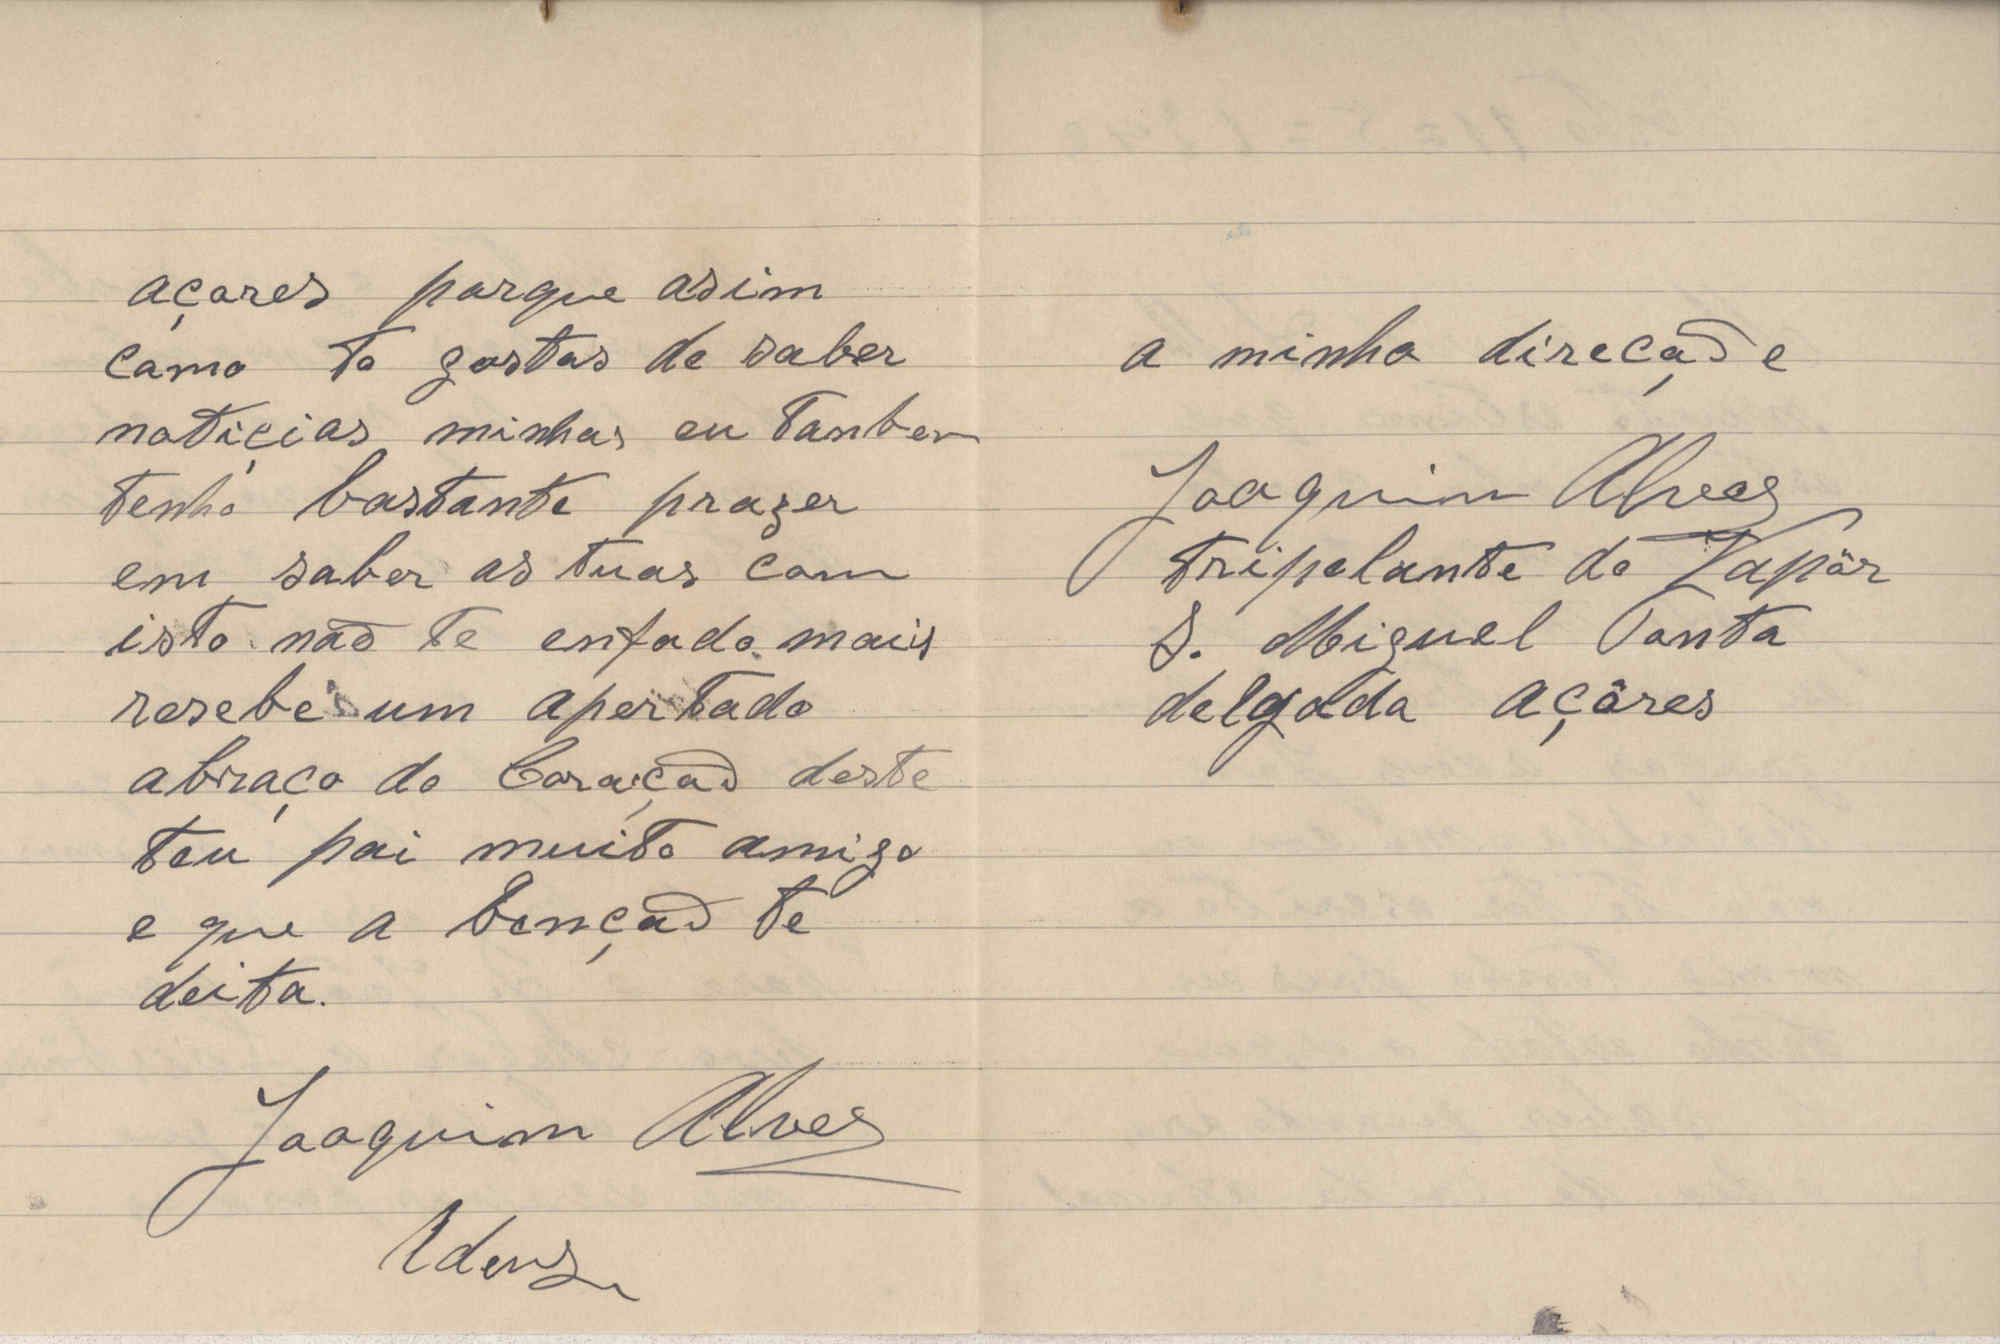 açores porque asim
como to gostas de saber
notiçias minhas eu tanbem
tenho bastante prazer
em saber as tuas com
isto não te enfado mais
resebe um apertado
abraço do Coração deste
teu pai muito amigo
e que a bençaõ te
deita.
Joaquim Alves
Adeus
a minha direcção e
Joaquim Alves
tripolante do Vapôr
S. Miguel Ponta
delgada Açôres